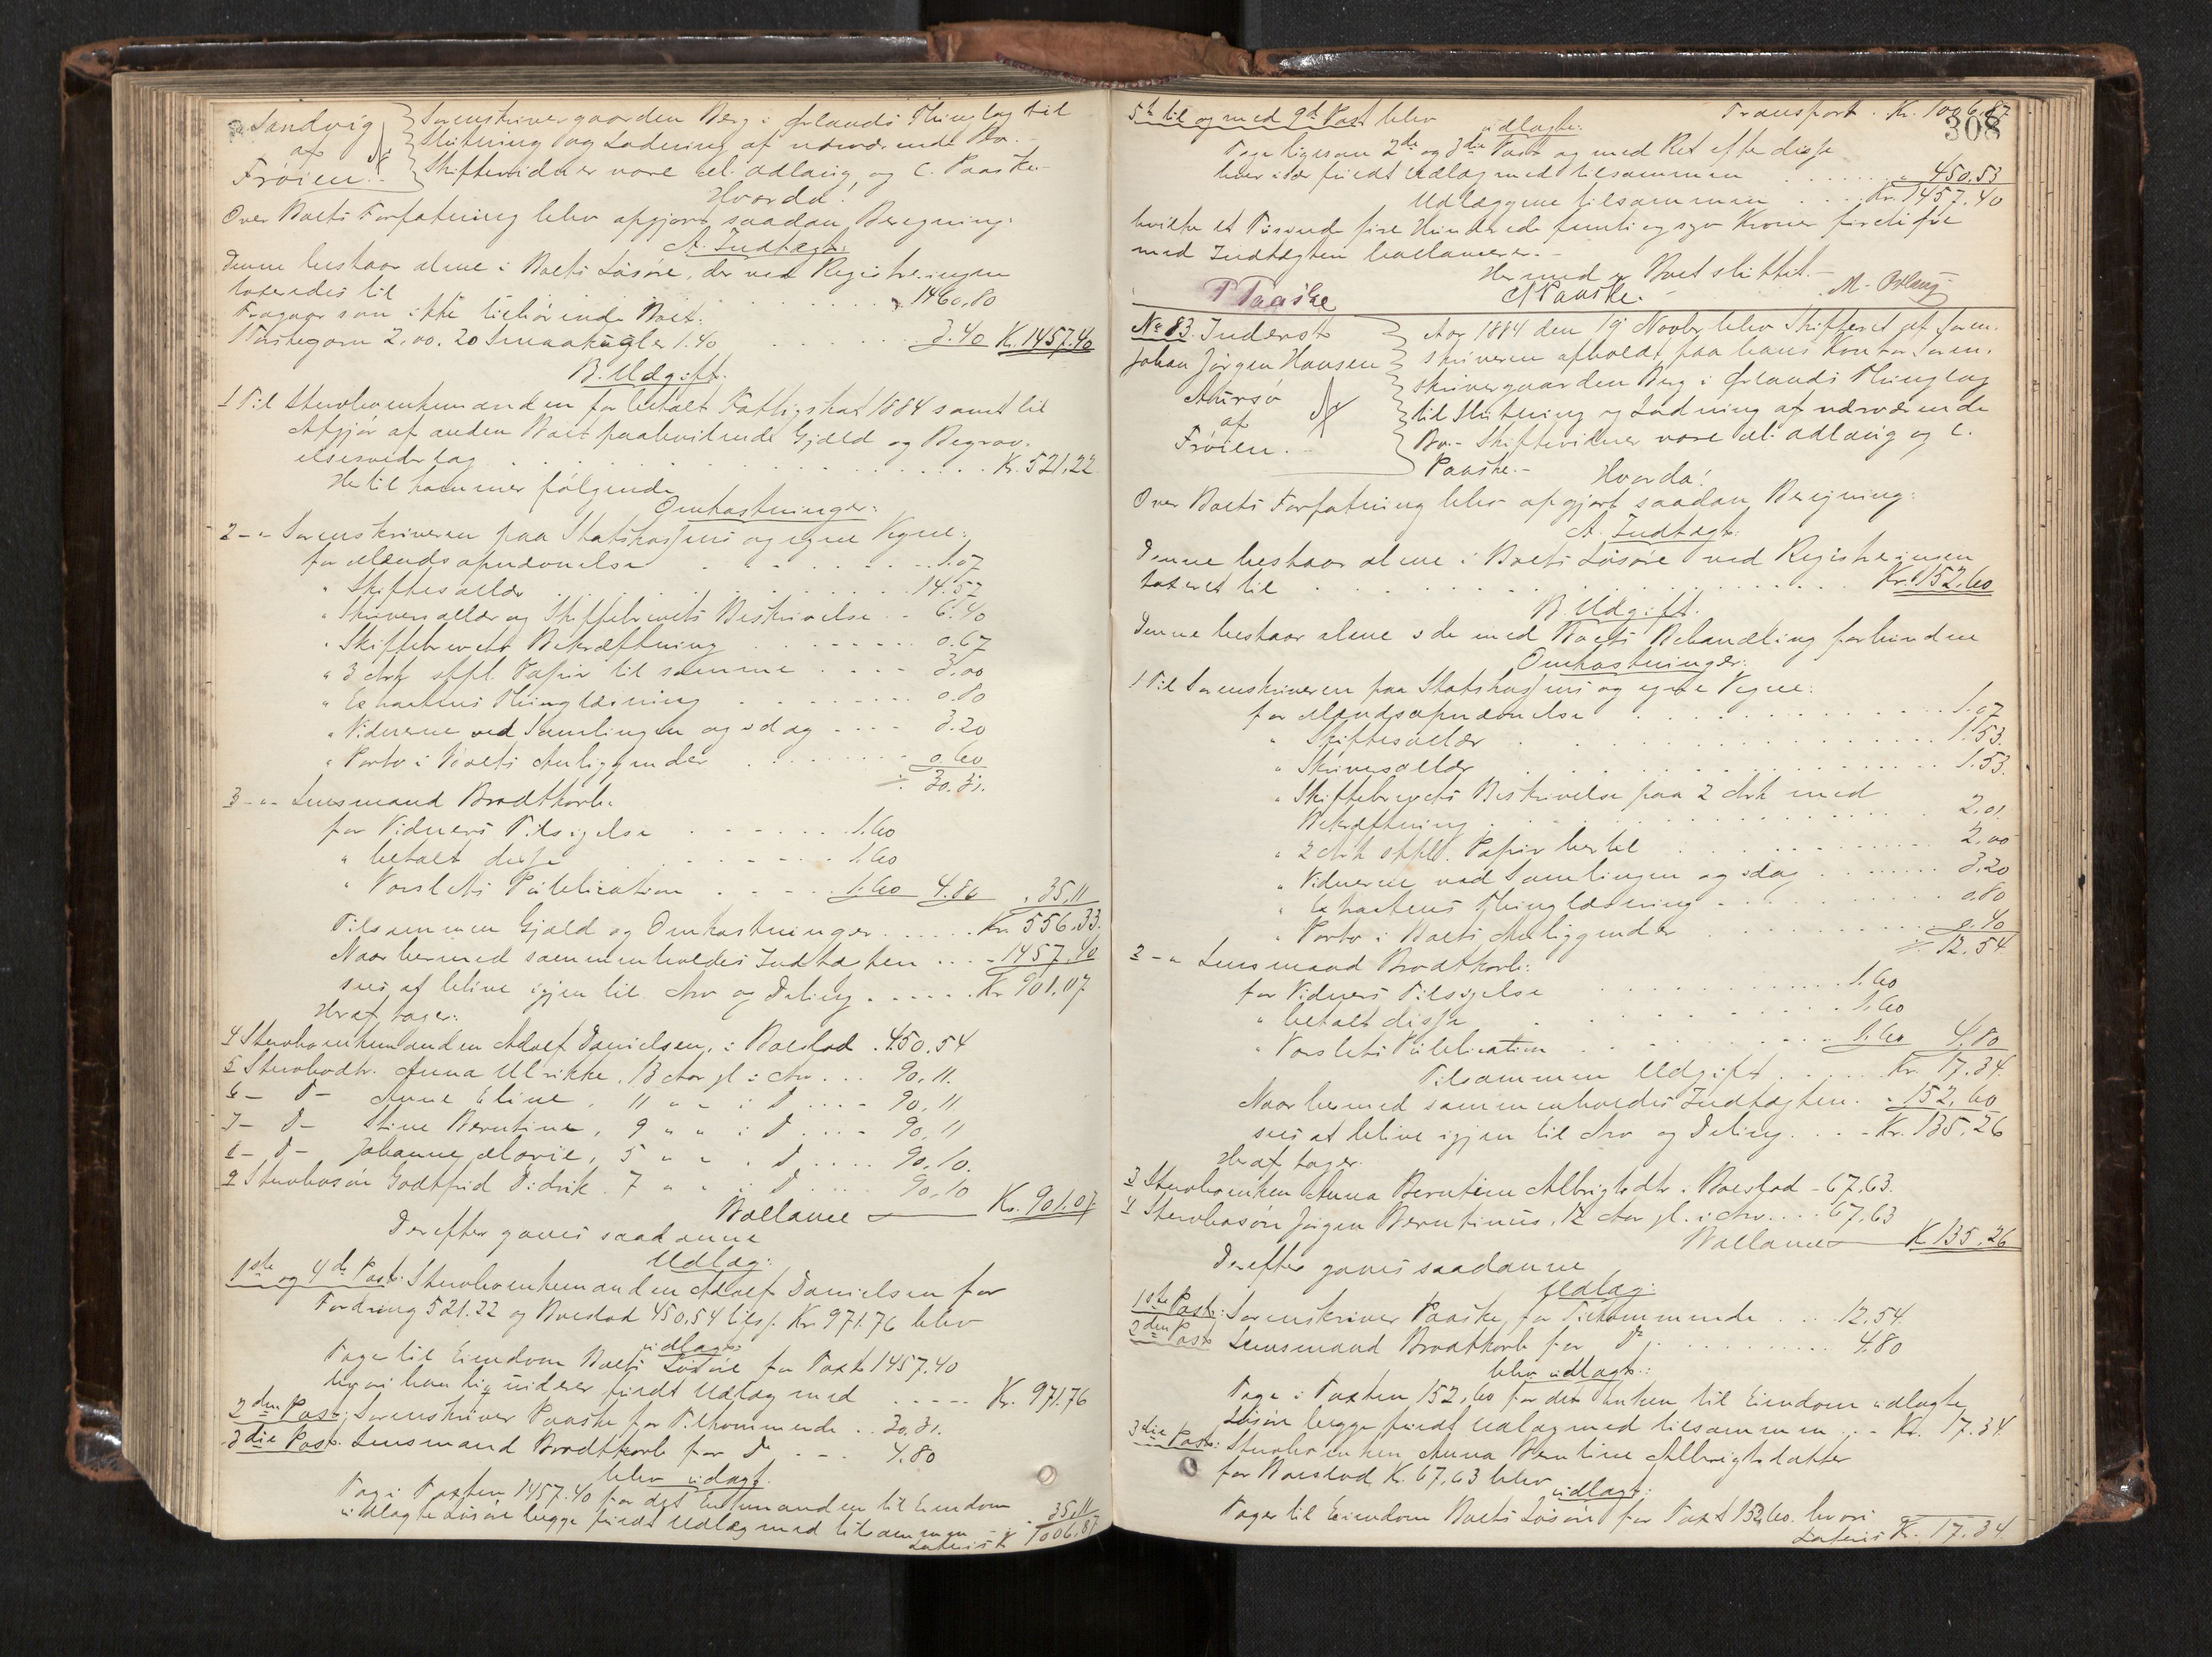 Sandvig
af
Frøien.
Sorenskrivergaarden Berg i Ørlands Thinglag til
Slutning og Lodning af nærværende Bo.
Skiftevidner vare M. Ødlaug og C. Paaske.
Hvorda!
Over Boets Forfatning blev opgjort saadan Beregning:
A. Indtægt:
Denne bestaar alene i Boets Løsøre, der ved Registreringen
taxeredes til . . . . 1460.80
Fragaar som ikke tilhørende Boet:
1 Vastegarn 2.00. 20 Smaakugler 1.40 . . . 3.40 Kr. 1457.40
B. Udgift.
1 Til Sterboenkemanden for betalt Fattigskat 1884 samt til
Afgjør af anden Boet paahvilende Gjæld og Begrav-
elsesvederlag . . . . Kr. 521.22
Hertil kommer følgende
Omkostninger:
2 - " Sorenskriveren paa Statskassens og egne Vegne:
for Mændsopnævnelse . . . 1.07
" Skiftesallær . . . 14.57
" Skriversallær og Skiftebrevets Beskrivelse . . 6.40
" Skiftebrevets Bekræftning . . . 0.67
" 3 Ark stpl. Papir til samme . . . 3.00
" Extractens Thinglæsning . . . 0.80
" Vidnerne ved Samlingen og idag . . . 3.20
" Porto i Boets Anliggender . . . 0.60
÷ 30.31.
3 - " Lensmand Brodtkorb:
for Vidners Tilsigelse . . . 1.60
" betalt disse . . . 1.60
" Varslets Publication . . . 1.60 4.80 . 35.11
Tilsammen Gjæld og Omkostninger . . . Kr. 556.33.
Naar hermed sammenholdes Indtægten . . . 1457.40
sees at blive igjen til Arv og Deling . . . Kr. 901.07
Heraf tager:
4 Sterboenkemanden Adolf Danielsen, i Boeslod . 450.54
5 Sterbodtr. Anna Ulrikke, 13 Aar gl. i Arv . . . 90.11.
6 - D - Anne Eline, 11 " " i D . . . 90.11
7 - D - Stine Berntine, 9 " " i D . . . 90.11
8 - D - Johanne Marie, 5 " " i D . . . 90.10.
9 Sterbosøn Godtfrid Didrik. 7 " " i D . . . 90.10
Ballance Kr. 901.07
Derefter gaves saadanne
Udlæg:
1ste og 4de Post: Sterboenkemanden Adolf Danielsen for
Fordring 521.22 og Boeslod 450.54 tils. Kr. 971.76 blev
udlagt:
Tage til Eiendom Boets Løsøre for Taxt 1457.40
hvori han nyder fuldt Udlæg med . . . Kr. 971.76
2den Post: Sorenskriver Paaske for Tilkommende . . 30.31.
3die Post. Lensmand Brodtkorb for D . . 4.80
blev udlagt.
Tage i Taxten 1457.40 for det Enkemanden til Eiendom
udlagte Løsøre begge fuldt Udlæg med tilsammen . . 35.11
Lateris Kr 1006.87
5te til og med 9de Post blev Transport . Kr. 1006.87
308
udlagt:
Tage ligesom 2den og 3die Post og med Ret efter disse
hver især fuldt Udlæg med tilsammen . . . 450.53
Udlæggene tilsammen . . . Kr. 1457.40
hvilke et Tusinde fire Hundrede femti og syv Kroner firti Øre
med Indtægten ballancerer.
Hermed er Boet sluttet.
P Paaske C Paaske. M. Ødlaug
No 83. Inderst
Johan Jørgen Hansen
Aursø
af
Frøien.
Aar 1884 den 19 Novbr. blev Skifteret af Soren-
skriveren afholdt paa hans Kontor Soren-
skrivergaarden Berg i Ørlands Thinglag
til Slutning og Lodning af nærværende
Bo. Skiftevidner vare M. Ødlaug og C.
Paaske.
Hvorda!
Over Boets Forfatning blev opgjort saadan Beregning:
A. Indtægt:
Denne bestaar alene i Boets Løsøre ved Registreringen
taxeret til . . . Kr. 152.60
B. Udgift.
Denne bestaar alene i de med Boets Behandling forbundne
Omkostninger:
1 Til Sorenskriveren paa Statskassens og egne Vegne:
for Mændsopnævnelse . . . 1.07
" Skiftesallær . . . 1.53.
" Skriversallær . . . 1.53.
" Skiftebrevets Beskrivelse paa 2 Ark med
Bekræftning . . . 2.01.
" 2 Ark stplt. Papir hertil . . . 2.00
" Vidnerne ved Samlingen og idag . . . 3.20
" Extractens Thinglæsning . . . 0.80
" Porto i Boets Anliggender . . . 0.40
÷ 12.54.
2 - " Lensmand Brodtkorb:
for Vidners Tilsigelse . . . 1.60
" betalt disse . . . 1.60
" Varslets Publication . . . 1.60 4.80
Tilsammen Udgift . . . Kr. 17.34.
Naar hermed sammenholdes Indtægten . . 152.60
sees at blive igjen til Arv og Deling . . . Kr. 135.26
Heraf tager:
3 Sterboenken Anna Berntine Albrigtsdtr. i Boeslod - 67.63.
4 Sterbosøn Jørgen Berntinus, 12 Aar gl. i Arv . . . 67.63
Ballance K. 135.26
Derefter gaves saadanne
Udlæg:
1ste Post: Sorenskriver Paaske, for Tilkommende . . . 12.54.
2den Post Lensmand Brodtkorb for Do . . . 4.80
blev udlagt:
Tage i Taxten 152.60 for det Enken til Eiendom udlagte
Løsøre begge fuldt Udlæg med tilsammen . . Kr. 17.34
3die Post: Sterboenken Anna Berntine Albrigtsdatter
for Boeslod K. 67.63 blev
udlagt:
Tager til Eiendom Boets Løsøre for Taxt 152.60. hvori
Lateris Kr. 17.34.